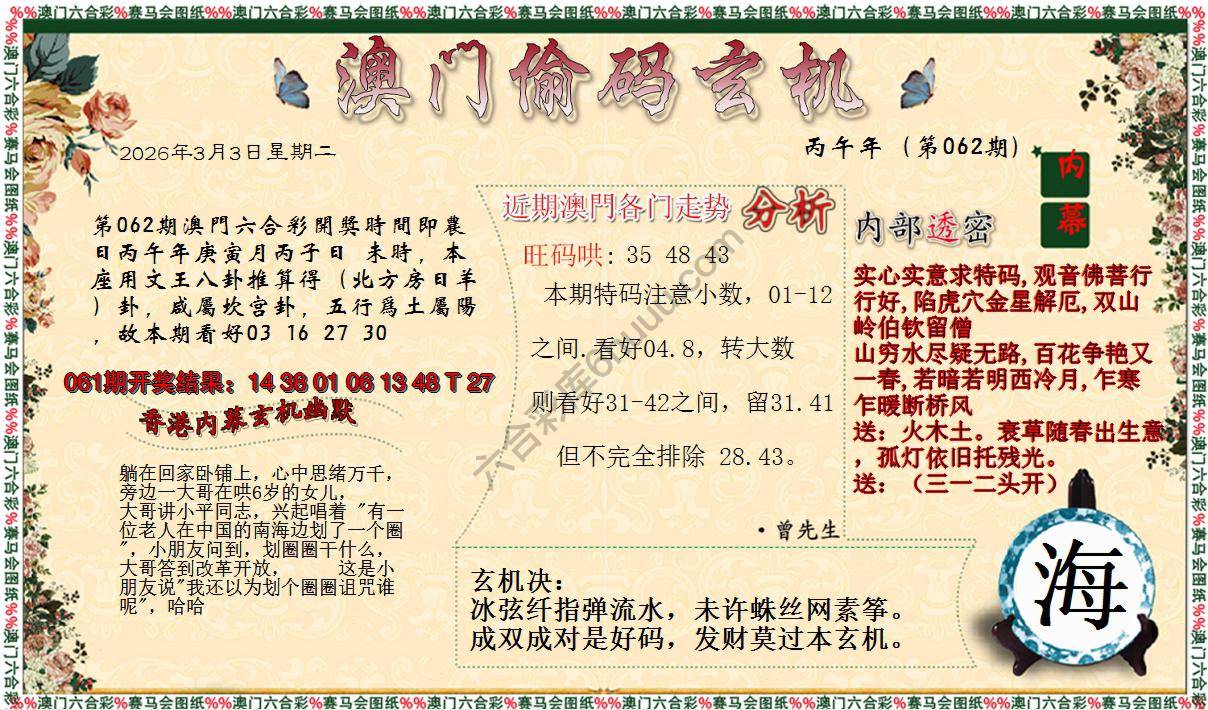 %%澳门六合彩%赛马会图纸%%澳门六合彩%赛马会图纸%%澳门六合彩%赛马会图纸%%澳门六合彩%赛马会图纸%%澳门六合彩%赛马会图纸%%澳门六合彩%赛马会图纸%%
澳门偷码玄机
2026年3月3日星期二
丙午年（第062期）
内
幕
第062期澳門六合彩開獎時間即農
日丙午年庚寅月丙子日 未時，本
座用文王八卦推算得（北方房日羊
）卦，咸屬坎宫卦，五行爲土屬陽
，故本期看好03 16 27 30
061期开奖结果：14 38 01 06 13 48 T 27
香港内幕玄机幽默
躺在回家卧铺上，心中思绪万千，
旁边一大哥在哄6岁的女儿，
大哥讲小平同志，兴起唱着 "有一
位老人在中国的南海边划了一个圈
"，小朋友问到，划圈圈干什么，
大哥答到改革开放， 这是小
朋友说"我还以为划个圈圈诅咒谁
呢"，哈哈
近期澳門各门走势 分析
旺码哄: 35 48 43
本期特码注意小数，01-12
之间.看好04.8，转大数
则看好31-42之间，留31.41
但不完全排除 28.43。
·曾先生
内部透密
实心实意求特码,观音佛菩行
行好,陷虎穴金星解厄,双山
岭伯钦留僧
山穷水尽疑无路,百花争艳又
一春,若暗若明西冷月,乍寒
乍暖断桥风
送：火木土。衰草随春出生意
，孤灯依旧托残光。
送：（三一二头开）
玄机决：
冰弦纤指弹流水，未许蛛丝网素筝。
成双成对是好码，发财莫过本玄机。
海